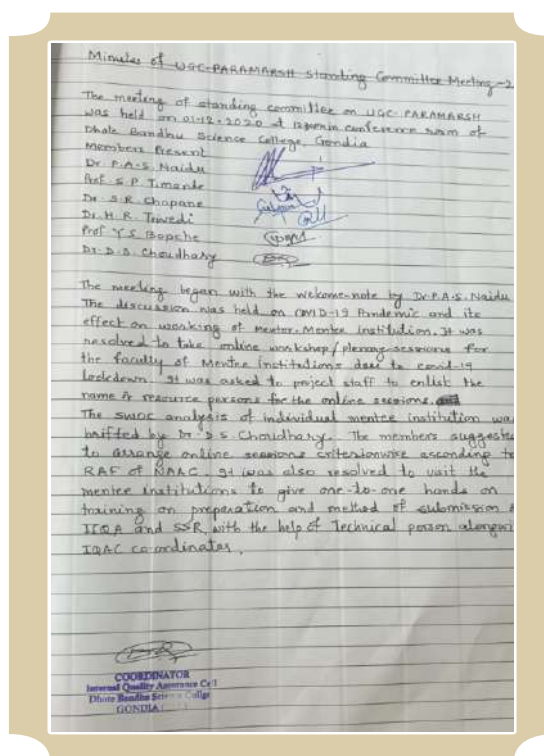 Minutes of UGC-PARAMARSH Standing Committee Meeting-2
The meeting of standing committee on UGC-PARAMARSH
was held on 01-12-2020 at in conference room of
Dhote Bandhu Science College, Gondia
Members Present
Dr. P.A.S. Naidu
Prof. S.P. Timande
Dr. S.R. Chopane
Dr. H.R. Trivedi
Prof Y.S. Bopche
Dr. D.S. Choudhary
The meeting began with the welcome-note by Dr. P.A.S. Naidu
The discussion was held on COVID-19 Pandemic and its
effect on working of Mentor-Mentee institution. It was
resolved to take online workshop/plenary sessions for
the faculty of Mentee institutions due to covid-19
Lockdown. It was asked to project staff to enlist the
name & resource persons for the online sessions.
The SWOC analysis of individual mentee institution was
briffed by Dr. D.S. Choudhary. The members suggested
to arrange online sessions criterionwise according to
RAF of NAAC. It was also resolved to visit the
mentee institutions to give one-to-one hands on
training on preparation and method of submission
IIQA and SSR, with the help of Technical person alongwi
IQAC co-ordinator.
COORDINATOR
Internal Quality Assurance Cell
Dhote Bandhu Science College
GONDIA